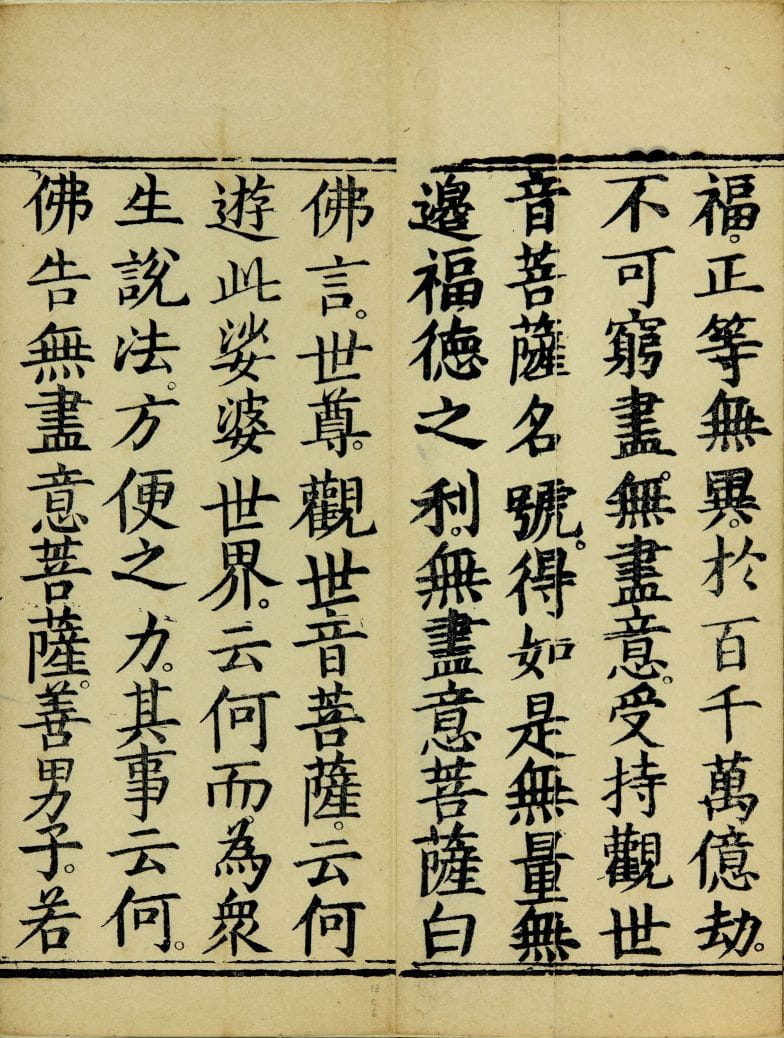 福。正等無異。於百千萬億劫。
不可窮盡。無盡意。受持觀世
音菩薩名號。得如是無量無
邊福徳之利。無盡意菩薩白
佛言。世尊。觀世音菩薩。云何
遊此娑婆世界。云何而為衆
生說法。方便之力。其事云何。
佛告無盡意菩薩。善男子。若